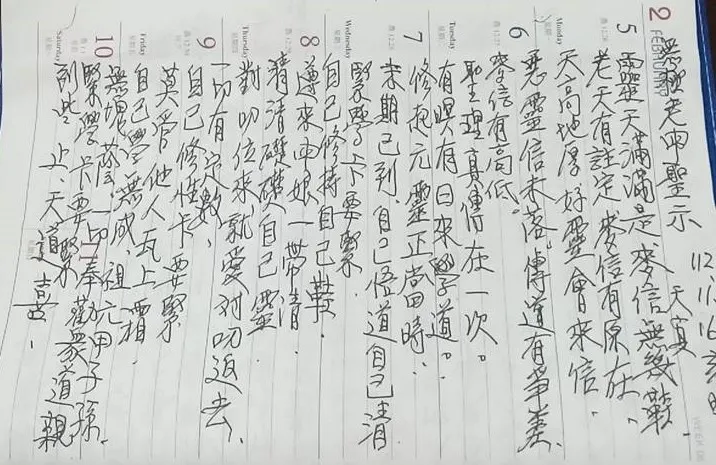 2 FEBRUARY
無極老母聖示 天真
112.11.16
靈天滿滿是麥信無幾鞋
老天有註定、麥信有原在、
天高地厚好靈會來信、
悪靈信未落。傳道有爭差、
麥信有高低。
聖理真傳在一次。
有瞑有日來學道。
修抱元靈正當時、
末期已到、自己悟道自己清
緊學卡要緊、
自己修持自己鞋
遵來母娘一帶清、
清清礎礎自己靈
對叨位來就愛對叨返去、
一切有定數、
自己修性卡要緊
莫管他人瓦上霜
自己學無成、祖元甲子孫
無塊蔭、一切奉勸眾道親
緊學卡要緊
到此、上天道喜、
5
Monday
6
Tuesday
7
Wednesday
8
Thursday
9
Friday
10
Saturday
11